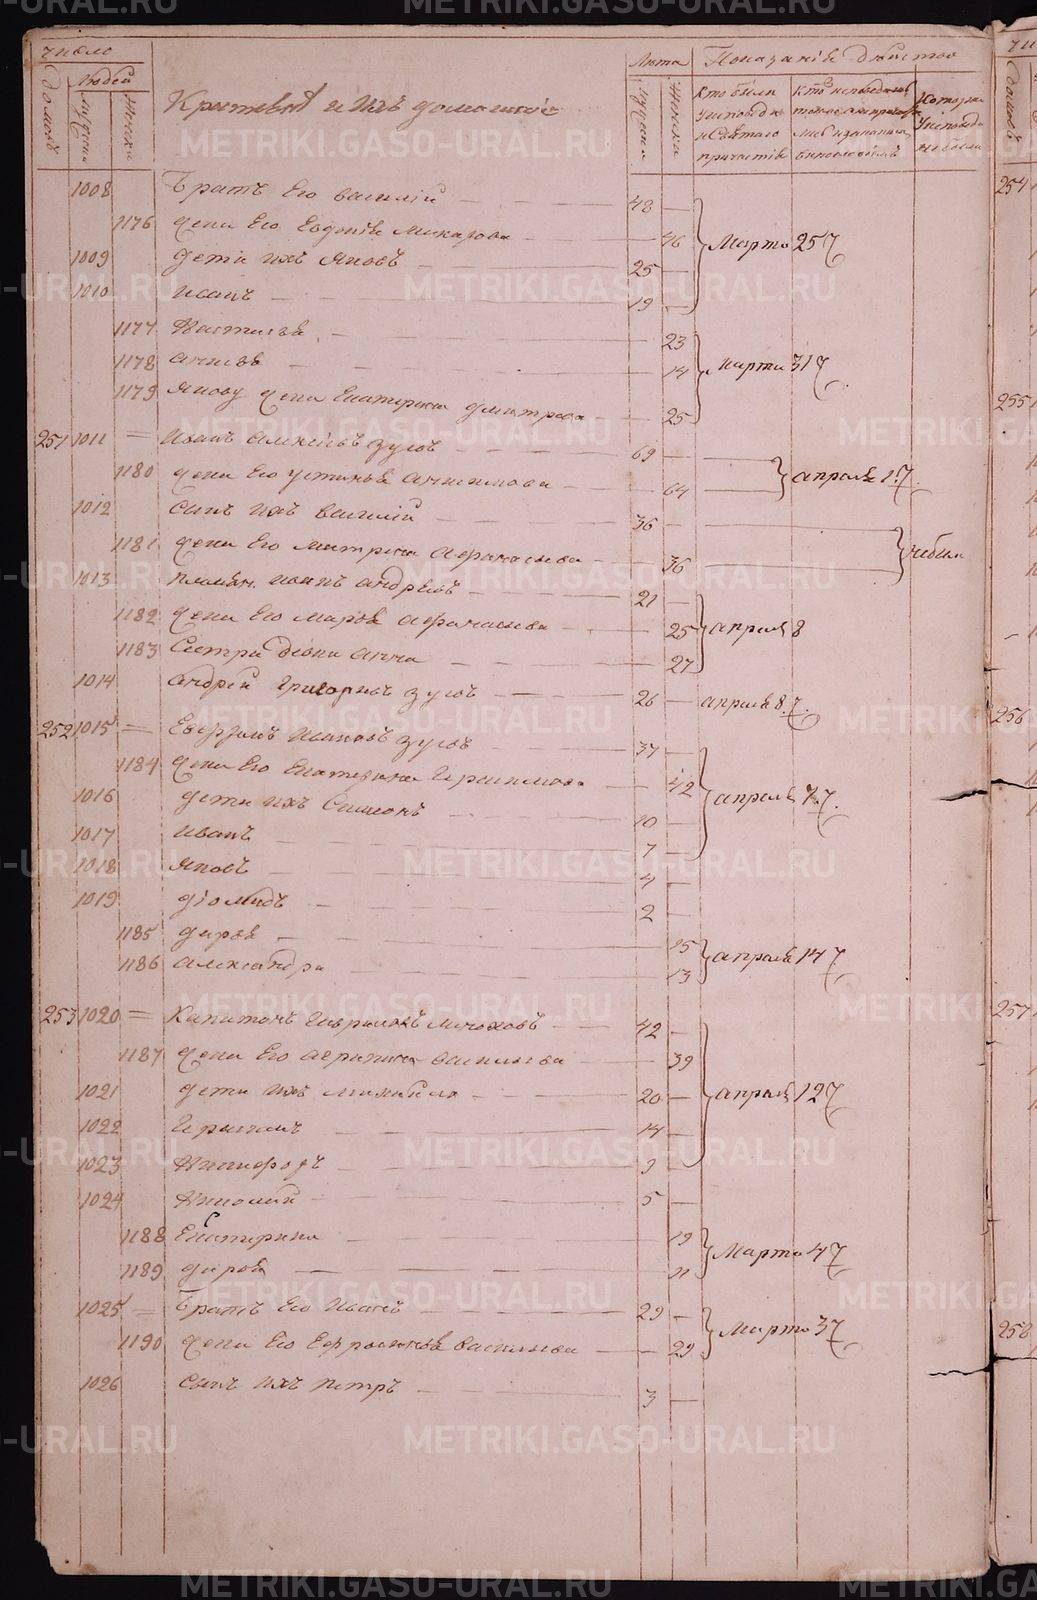 число
Домовъ
Людей
Мужеска
Женска
Крестьяня и ихъ домашніе
Лѣта
Мужеска
Женска
Показаніе дѣйства
Кто были
у исповѣди
и Святаго
причастія
Которые
у исповѣди
не были
1008 Братъ Его василій 48
1176 жена Его Евдокія Макарова 46
Марта 25
1009 дети ихъ Яковъ 25
1010 иванъ 19
1177 Настасья 23
1178 анисья 14
марта 31
1179 Якову жена Екатерина дмитрева 25
251 1011 Иванъ алексѣевъ зуевъ 69
1180 жена Его устинья анисимова 64
апреля 1
1012 сынъ ихъ василій 36
1181 жена Его матрена афанасьева 36
небыли
1013 племян. иванъ андреевъ 21
1182 жена Его марфа афанасьева 25
апреля 8
1183 Сестра девка анна 27
1014 андрей григорьевъ зуевъ 26 апреля 8
252 1015 Евграфъ Ивановъ зуевъ 37
1184 жена Его Екатерина Герасимова 42
1016 дети ихъ Симеонъ 10
апреля 7
1017 иванъ 7
1018 Яковъ 4
1019 діомидъ 2
1185 дарья 15
1186 александра 13
апреля 14
253 1020 Капитонъ Гаврилевъ 42
1187 жена Его агрипина васильева 39
1021 дети ихъ михайло 20
апреля 12
1022 Герасимъ 14
1023 Никифоръ 9
1024 Николай 5
1188 Екатерина 19
Марта 4
1189 дарья 11
1025 Братъ Его Иванъ 29
Марта 3
1190 жена Его Ефросинья васильева 29
1026 сынъ ихъ петръ 3
254
255
256
257
258
METRIKI.GASO-URAL.RU